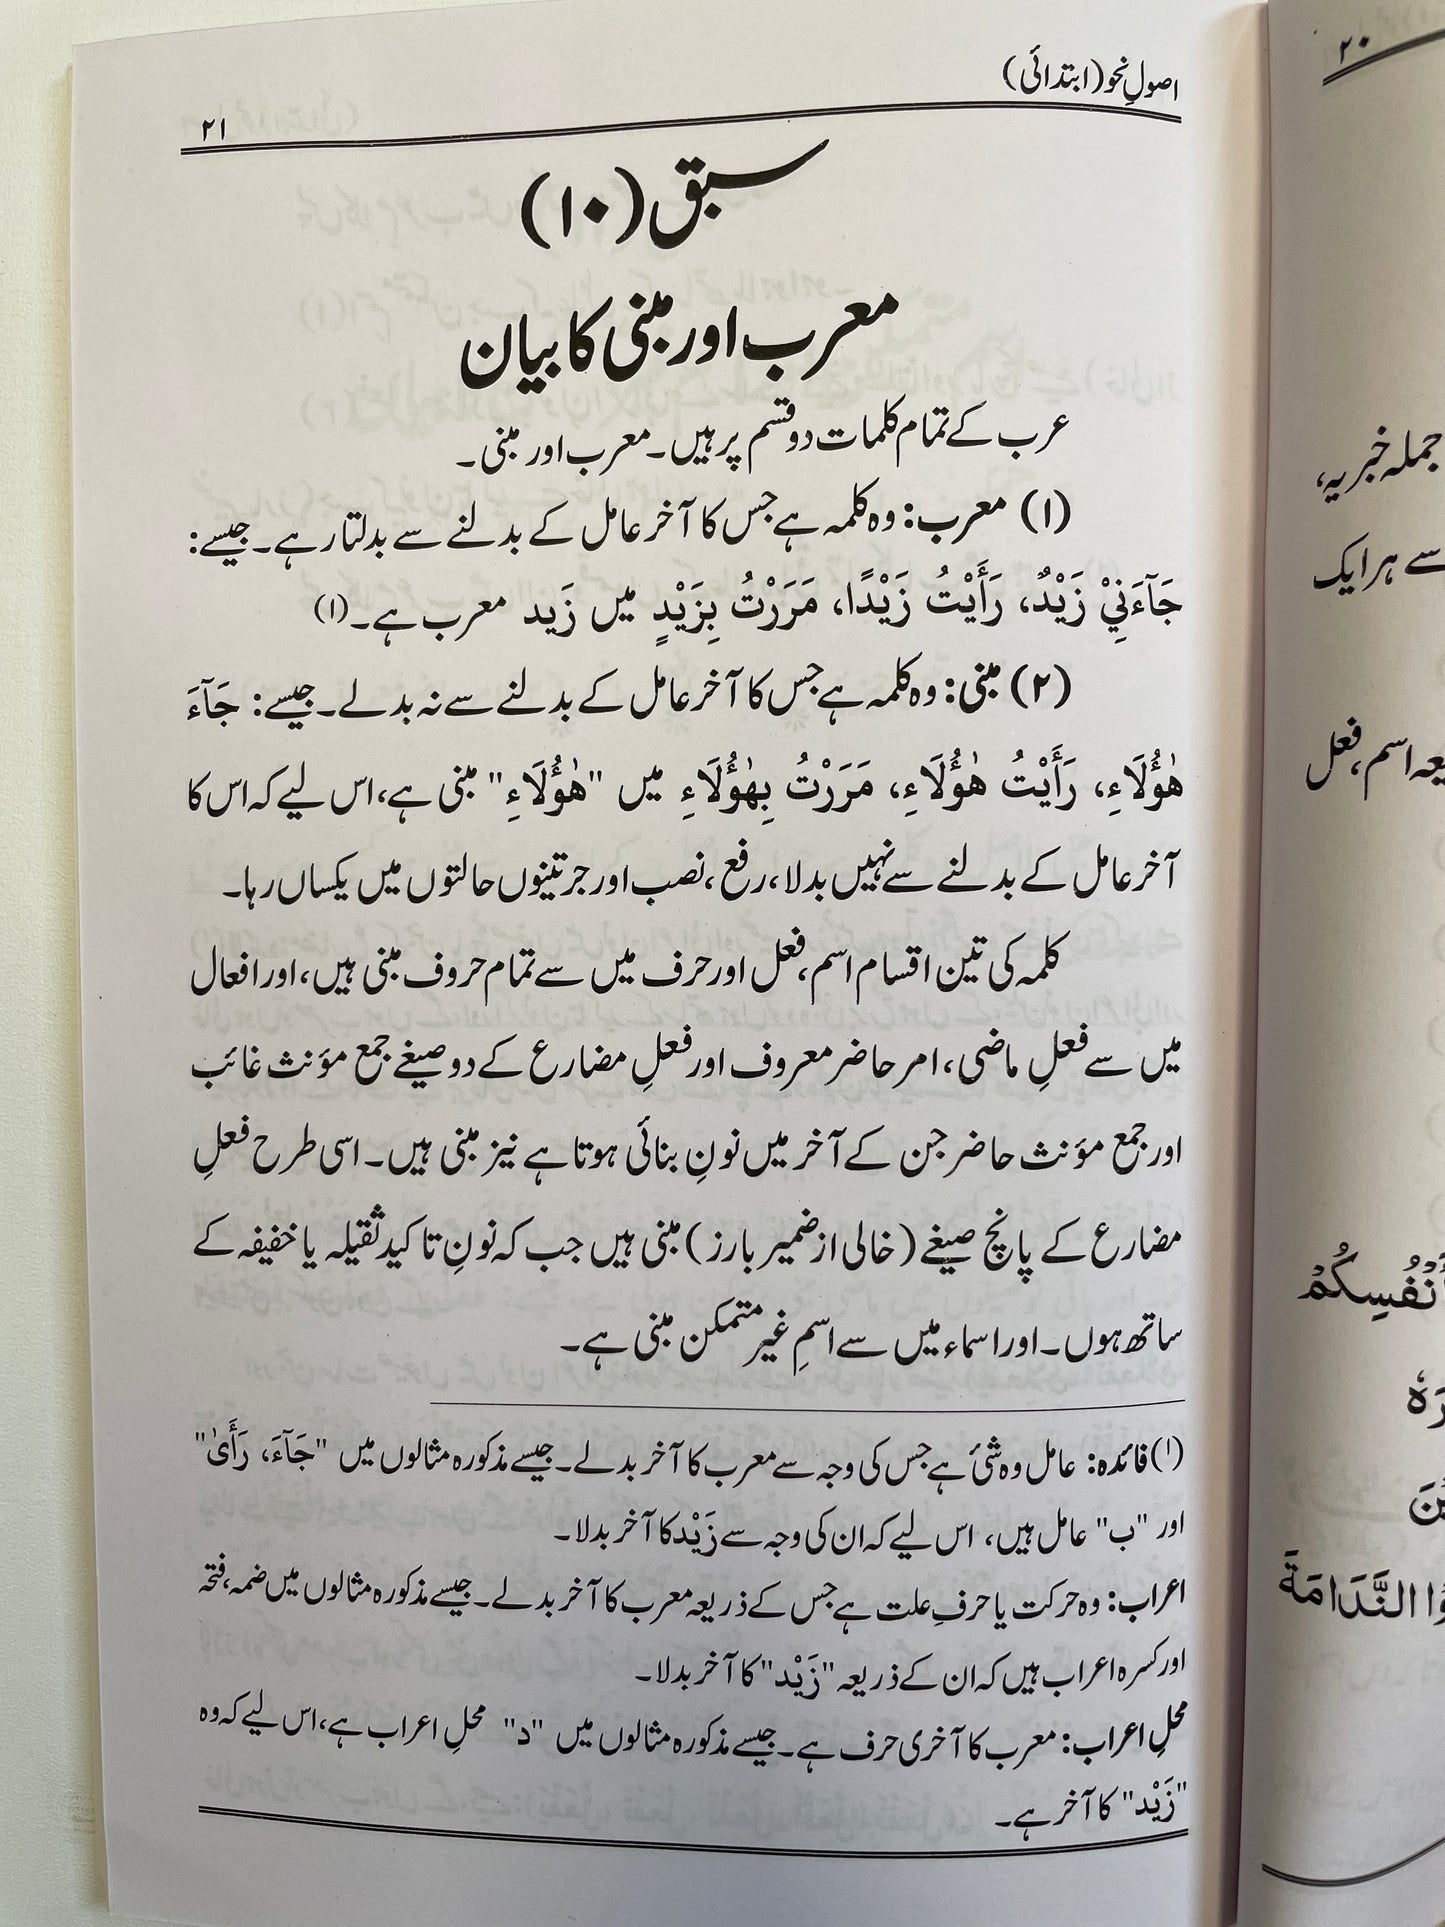 اصولِ نحو (ابتدائی)
۲۱
سبق (۱۰)
معرب اور مبنی کا بیان
عرب کے تمام کلمات دو قسم پر ہیں۔ معرب اور مبنی۔
(۱) معرب: وہ کلمہ ہے جس کا آخر عامل کے بدلنے سے بدلتا رہے۔ جیسے:
جَآءَنِيْ زَيْدٌ، رَأَيْتُ زَيْدًا، مَرَرْتُ بِزَيْدٍ میں زَید معرب ہے۔(۱)
(۲) مبنی: وہ کلمہ ہے جس کا آخر عامل کے بدلنے سے نہ بدلے۔ جیسے: جَآءَ
هٰؤُلَاءِ، رَأَيْتُ هٰؤُلَاءِ، مَرَرْتُ بِهٰؤُلَاءِ میں "هٰؤُلَاءِ" مبنی ہے، اس لیے کہ اس کا
آخر عامل کے بدلنے سے نہیں بدلا، رفع، نصب اور جر تینوں حالتوں میں یکساں رہا۔
کلمہ کی تین اقسام اسم، فعل اور حرف میں سے تمام حروف مبنی ہیں، اور افعال
میں سے فعلِ ماضی، امر حاضر معروف اور فعلِ مضارع کے دو صیغے جمع مؤنث غائب
اور جمع مؤنث حاضر جن کے آخر میں نونِ بنائی ہوتا ہے نیز مبنی ہیں۔ اسی طرح فعلِ
مضارع کے پانچ صیغے (خالی از ضمیر بارز) مبنی ہیں جب کہ نونِ تاکید ثقیلہ یا خفیفہ کے
ساتھ ہوں۔ اور اسماء میں سے اسمِ غیر متمکن مبنی ہے۔
(۱) فائدہ: عامل وہ شئ ہے جس کی وجہ سے معرب کا آخر بدلے۔ جیسے مذکورہ مثالوں میں "جَآءَ، رَأَىٰ"
اور "ب" عامل ہیں، اس لیے کہ ان کی وجہ سے زَيْد کا آخر بدلا۔
اعراب: وہ حرکت یا حرفِ علت ہے جس کے ذریعہ معرب کا آخر بدلے۔ جیسے مذکورہ مثالوں میں ضمہ، فتحہ
اور کسرہ اعراب ہیں کہ ان کے ذریعہ "زَيْد" کا آخر بدلا۔
محلِ اعراب: معرب کا آخری حرف ہے۔ جیسے مذکورہ مثالوں میں "د" محلِ اعراب ہے، اس لیے کہ وہ
"زَيْد" کا آخر ہے۔
۲۰
جملہ خبریہ،
سے ہر ایک
اسم، فعل
أَنْفُسِكُمْ
النَّدَامَةَ